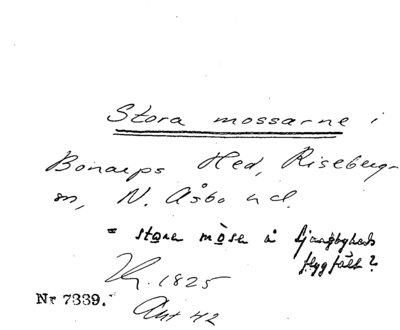 Stora mossarne i
Bonarps Hed, Riseberga
sn, N. Åsbo hd.
= stora möse å Ljungbyheds
flygfält?
1825
Nr 7339.
Ant 42